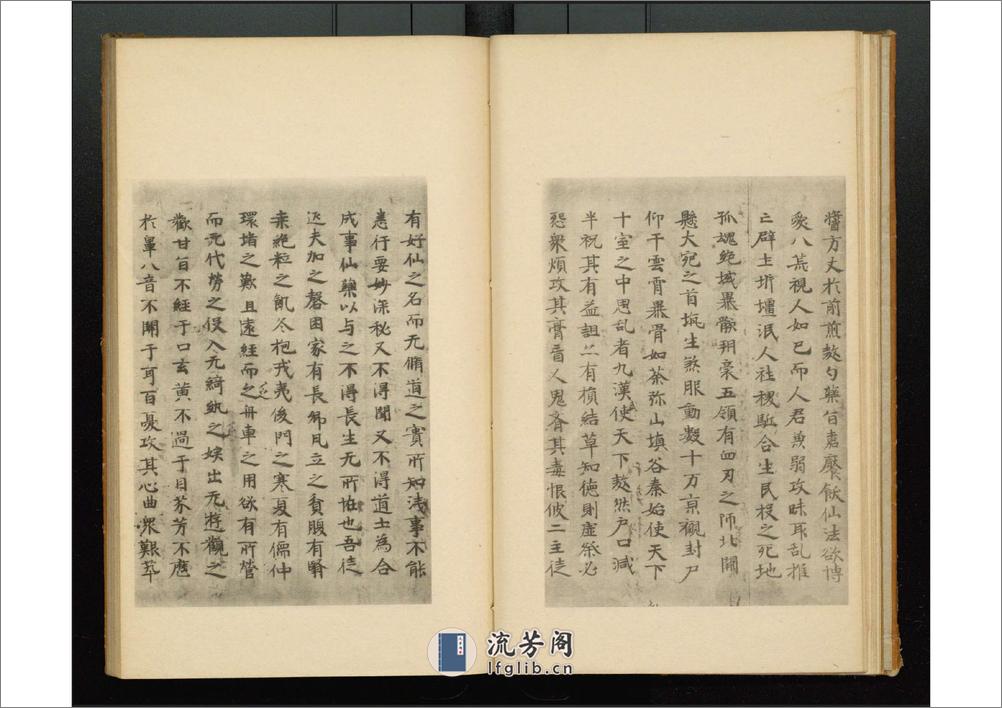 醬方丈於前煎熬勺藥旨嘉饜飫仙法欲博
愛八荒視人如己而人君兼弱攻昧取乱推
亡辟土拓壃泯人社稷駈合生民投之死地
孤魂絶域暴骸朔裔五領有血刃之師北闕
懸大宛之首坑生煞服動數十万京觀封尸
仰干雲霄暴骨如莽弥山填谷秦始使天下
十室之中思乱者九漢使天下熬然戶口減
半祝其有益詛亦有損結草知德則虛祭必
怨衆煩攻其膏肓人鬼齊其毒恨彼二主徒
有好仙之名而无脩道之實所知淺事不能
悉行要妙深秘又不得聞又不得道士為合
成事仙藥以与之不得長生无所怪也吾徒
迊夫加之罄困家有長卿凡立之貧腹有翳
桒絶粒之飢冬抱戎夷後門之寒夏有儒仲
環堵之歎且遠經而之舟車之用欲有所營
而无代勞之役入无綺紈之娯出无遊觀之
歡甘旨不經于口玄黃不過于目芬芳不歷
於鼻八音不關于耳百憂攻其心曲衆難萃
流芳阁
lfglib.cn